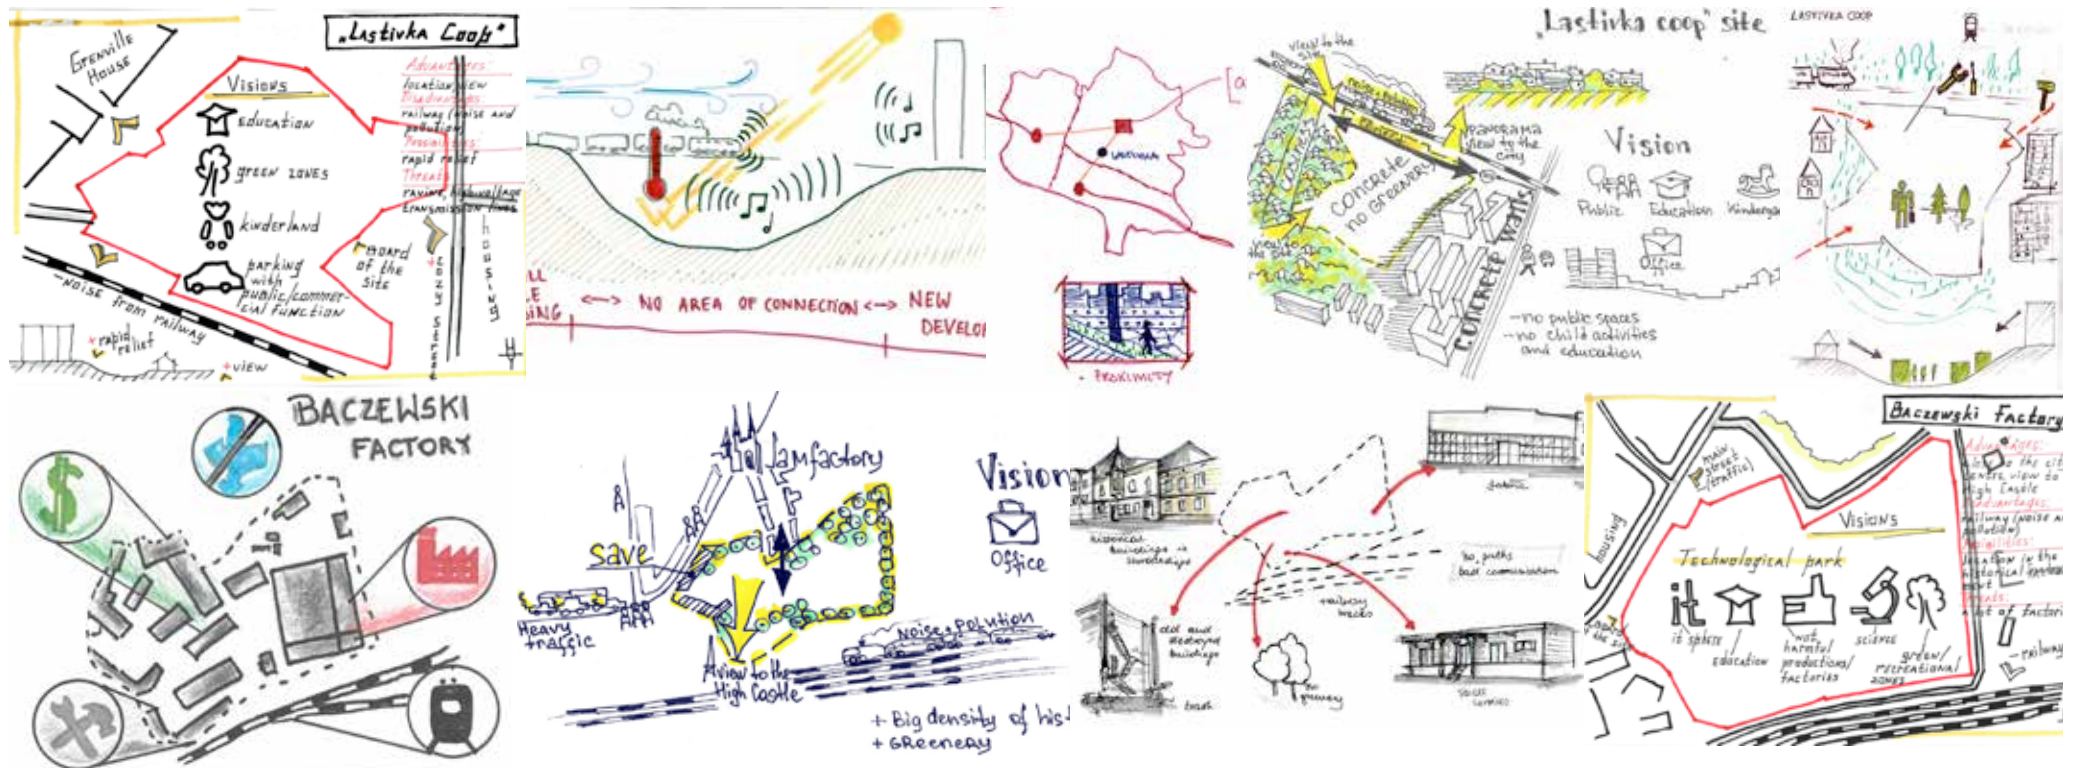 „Lastivka Coop"
Grenville
House
Visions
education
green zones
kinderland
parking
with
public/commer-
cial function
Advantages:
location view
Disadvantages:
railway (noise and
pollution)
Possibilities:
rapid relief
Threats
transmission lines
Board
of the
site
housing
cozy street
noise from railway
× rapid
relief
+ view
NO AREA OF CONNECTION
NEW
DEVELO
- PROXIMITY
„Lastivka coop" site
view to the
site
noise + pollution
panorama
view to the
city
concrete
no greenery
view to
the site
concrete walls
Vision
Public
Education
Kinderga
Office
- no public spaces
- no child activities
and education
LASTIVKA COOP
BACZEWSKI
FACTORY
$
Jamfactory
save
Heavy
traffic
A view to the
High Castle
Noise + Polution
Vision
Office
+ Big density of his
+ GReenery
historical
buildings
no paths
railway
tracks
old and
destroyed
buildings
trash
no
greenery
Baczewski Factory
main
street
(traffic)
housing
Visions
Technological park
it
it sphere
education
not
harmful
productions/
factories
science
green/
recreational
zones
Advantages:
close to the cit
centre view to
High Castle
Disadvantages:
railway (noise a
pollution)
Possibilities:
location in the
historical
Threats:
a lot of factori
railway